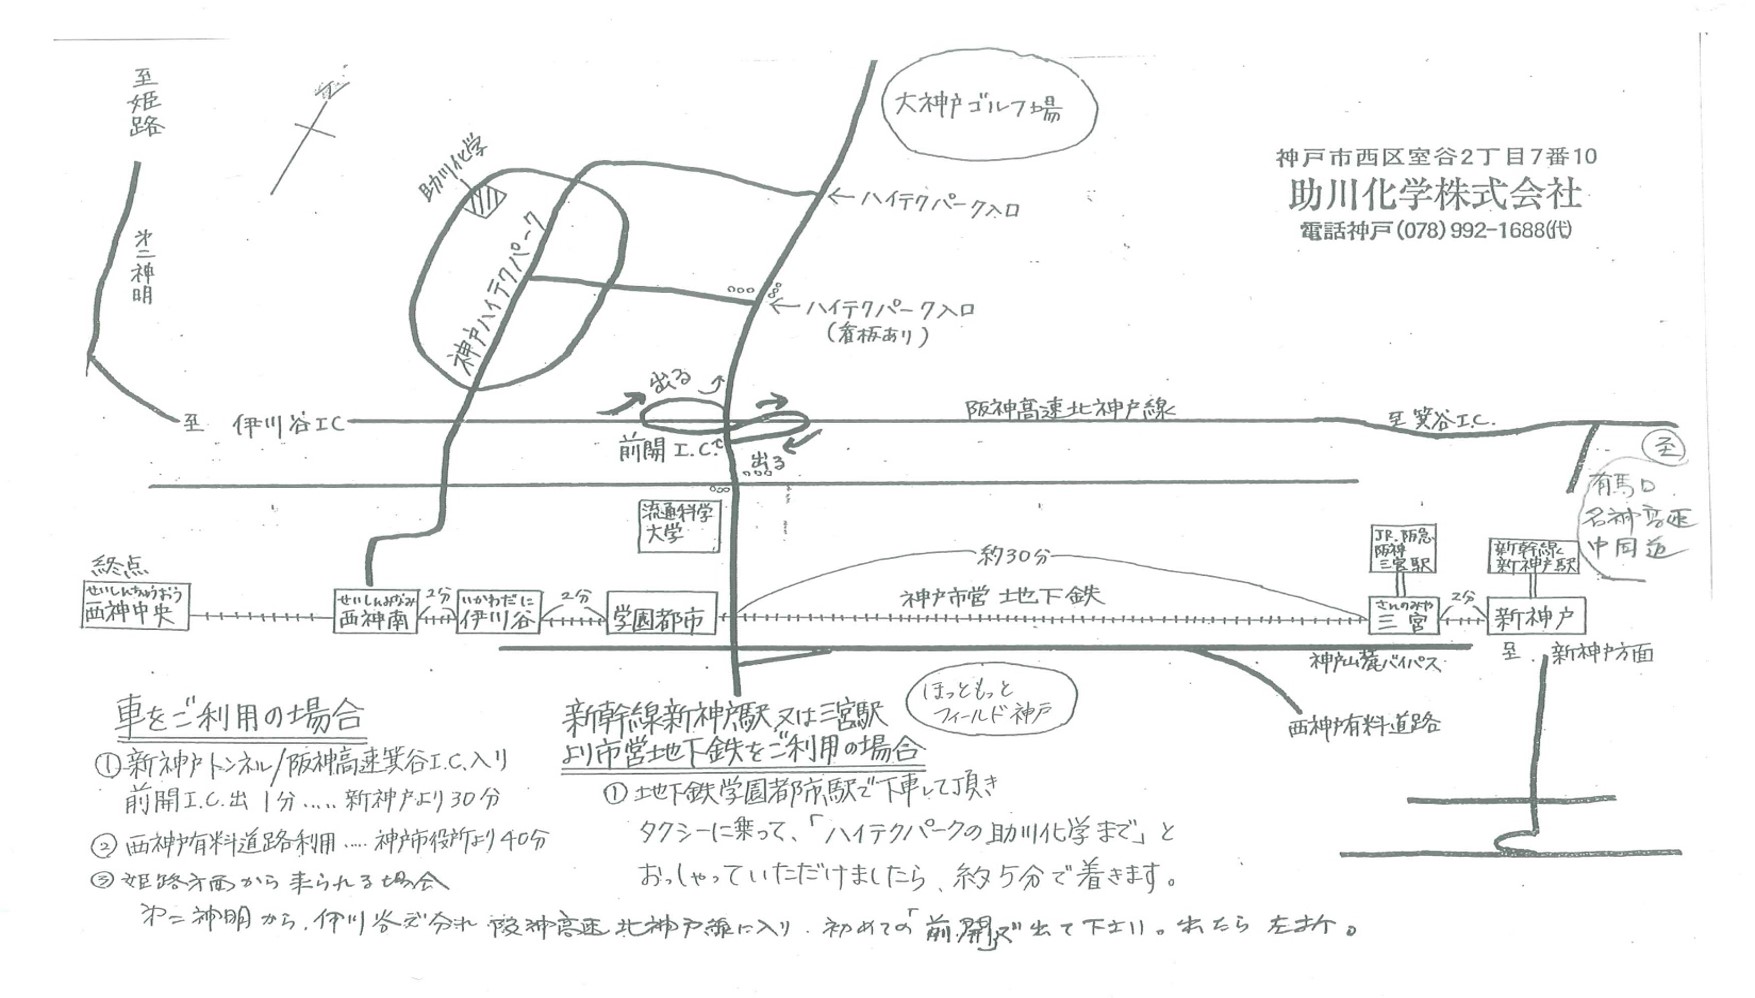 至姫路
第二神明
助川化学
神戸ハイテクパーク
大神戸ゴルフ場
←ハイテクパーク入口
←ハイテクパーク入口
(看板あり)
神戸市西区室谷2丁目7番10
助川化学株式会社
電話神戸(078)992-1688(代)
至 伊川谷I.C
出る
前開I.C.
出る
阪神高速北神戸線
至箕谷I.C.
至
有馬口
名神高速
中国道
流通科学
大学
約30分
神戸市営 地下鉄
終点
せいしんちゅうおう
西神中央
せいしんみなみ
西神南
2分
いかわだに
伊川谷
2分
学園都市
JR.阪急
阪神
三宮駅
さんのみや
三宮
2分
新幹線
新神戸駅
新神戸
神戸山麓バイパス
至 新神戸方面
西神戸有料道路
ほっともっと
フィールド神戸
車をご利用の場合
①新神戸トンネル/阪神高速箕谷I.C.入り
前開I.C.出 1分.....新神戸より30分
②西神戸有料道路利用.....神戸市役所より40分
③姫路方面から来られる場合
第二神明から、伊川谷で分れ 阪神高速北神戸線に入り、初めての「前開」で出て下さい。出たら 左折。
新幹線新神戸駅又は三宮駅
より市営地下鉄をご利用の場合
①地下鉄学園都市駅で下車して頂き
タクシーに乗って、「ハイテクパークの助川化学まで」と
おっしゃっていただけましたら、約5分で着きます。